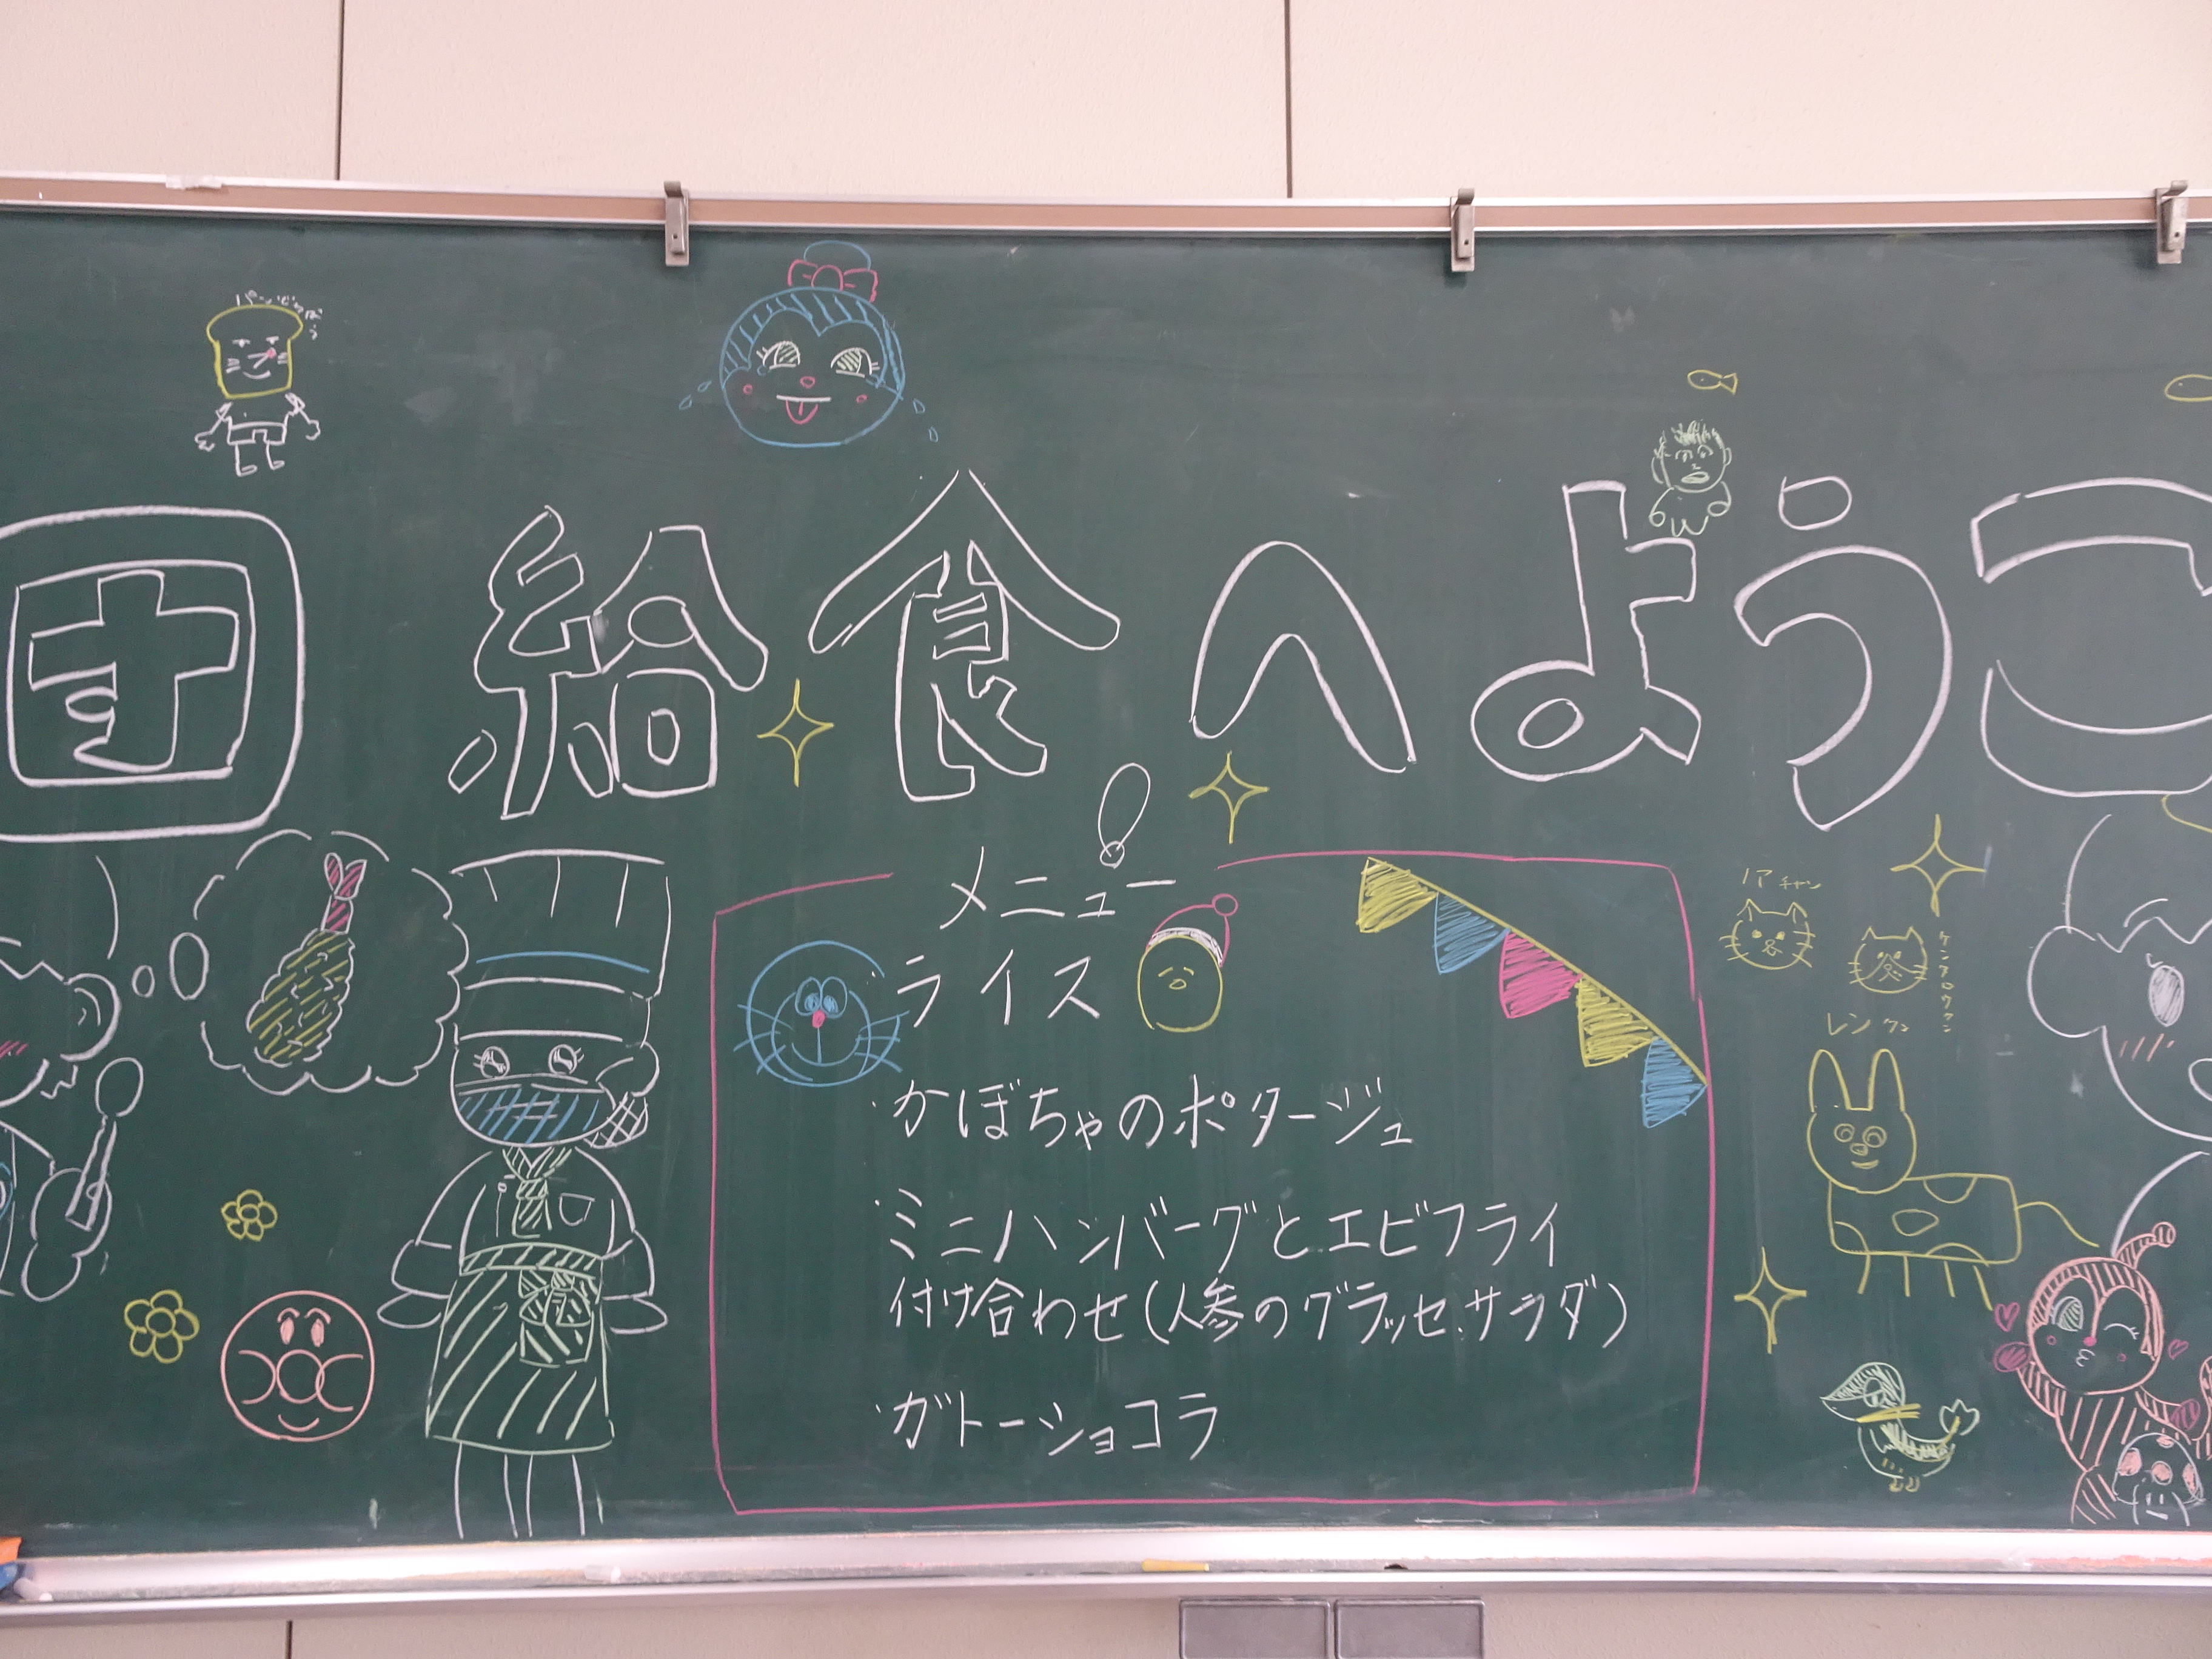 団 給食へようこ
メニュー
・ライス
・かぼちゃのポタージュ
・ミニハンバーグとエビフライ
付け合わせ(人参のグラッセ、サラダ)
・ガトーショコラ
ノアチャン
レンクン